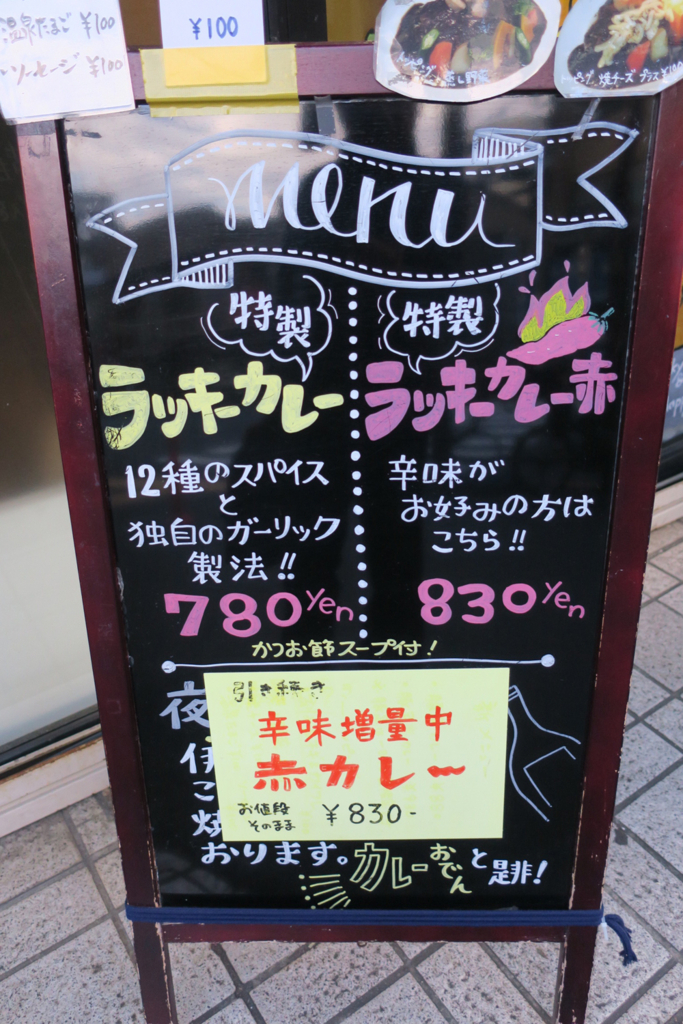 温泉たまご ¥100
ソーセージ ¥100
¥100
トッピング 蒸し野菜
トッピング 焼チーズ プラス¥100
menu
特製
ラッキーカレー
12種のスパイス
と
独自のガーリック
製法!!
780yen
特製
ラッキーカレー赤
辛味が
お好みの方は
こちら!!
830yen
かつお節スープ付!
夜
伊
こ
焼
引き続き
辛味増量中
赤カレー
お値段
そのまま
¥830-
おります。カレーおでんと是非!